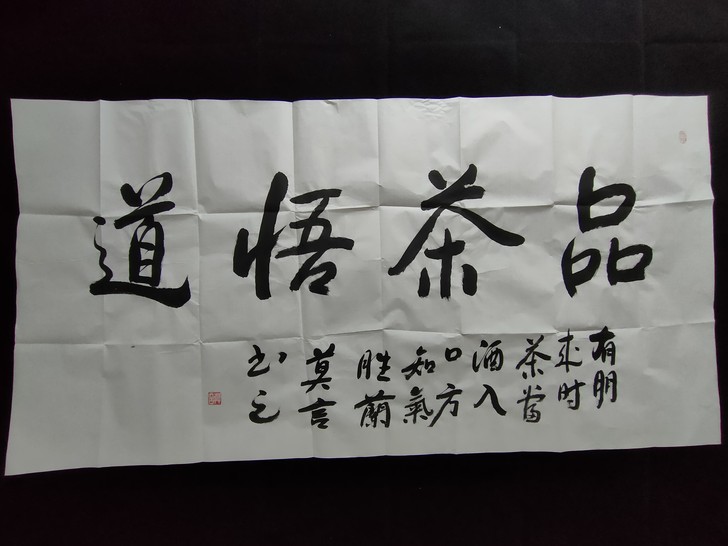 品茶悟道
有朋
来时
茶當
酒入
口方
知氣
胜蘭
莫言
书之